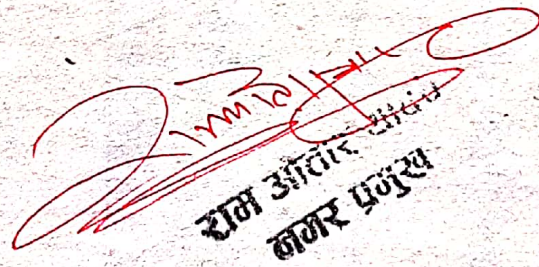 राम औतार यादव
नगर प्रमुख